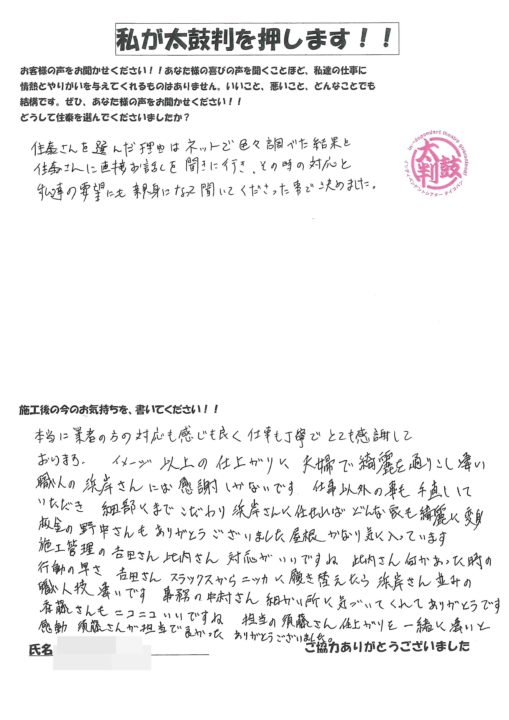 私が太鼓判を押します！！
お客様の声をお聞かせください！！あなた様の喜びの声を聞くことほど、私達の仕事に
情熱とやりがいを与えてくれるものはありません。いいこと、悪いこと、どんなことでも
結構です。ぜひ、あなた様の声をお聞かせください！！
どうして住秦を選んでくださいましたか？
住秦さんを選んだ理由は ネットで色々調べた結果と
住秦さんに直接お話しを聞きに行き、その時の対応と
私達の要望にも親身になって聞いてくださった事で決めました。
太鼓判
施工後の今のお気持ちを、書いてください！！
本当に業者の方の対応も感じも良く 仕事も丁寧で とても感謝して
おります。 イメージ以上の仕上がりに 夫婦で綺麗を通りこし凄い
職人の浜岸さんには感謝しかないです 仕事以外の事も手直しして
いただき 細部にまでこだわり 浜岸さんに任せれば どんな家も綺麗に変身
板金の野中さんも ありがとうございました 屋根 かなり気に入っています
施工管理の吉田さん 比内さん 対応がいいですね 比内さん 何かあった時の
行動の早さ 吉田さん スラックスからニッカに履き替えたら 浜岸さん並みの
職人技 凄いです 事務の中村さん 細かい所に気づいてくれて ありがとうです
斉藤さんも ニコニコ いいですね 担当の須藤さん 仕上がりを一緒に凄いと
感動 須藤さんが担当で良かった ありがとうございました。
氏名
ご協力ありがとうございました